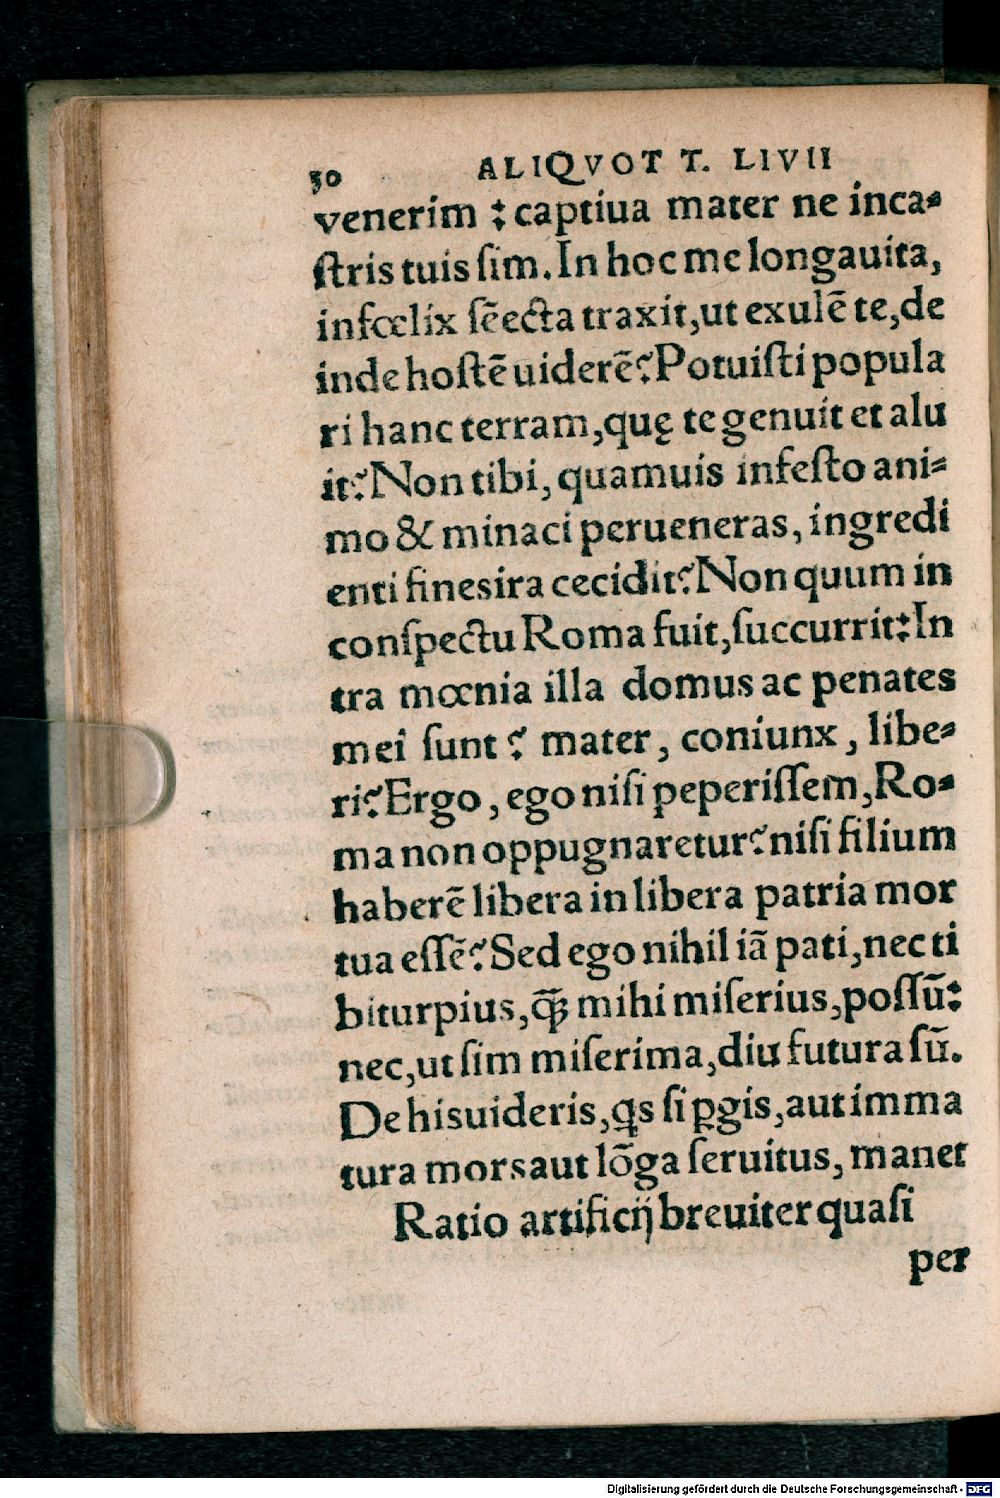 30 ALIQVOT T. LIVII
venerim : captiua mater ne inca-
ſtris tuis ſim. In hoc me longauita,
infœlix ſēecta traxit, ut exulē te, de
inde hoſtē uiderē? Potuiſti popula
ri hanc terram, quę te genuit et alu
it? Non tibi, quamuis infeſto ani-
mo & minaci perueneras, ingredi
enti fines ira cecidit? Non quum in
conſpectu Roma fuit, ſuccurrit: In
tra mœnia illa domus ac penates
mei ſunt? mater, coniunx, libe-
ri? Ergo, ego niſi peperiſſem, Ro-
ma non oppugnaretur? niſi filium
haberē libera in libera patria mor
tua eſſē? Sed ego nihil iā pati, nec ti
bi turpius, ꝙ̄ mihi miſerius, poſſū:
nec, ut ſim miſerima, diu futura ſū.
De his uideris, qꝫs ſi ꝑgis, aut imma
tura mors aut lōga ſeruitus, manet
Ratio artificij breuiter quaſi
per
Digitalisierung gefördert durch die Deutsche Forschungsgemeinschaft - DFG